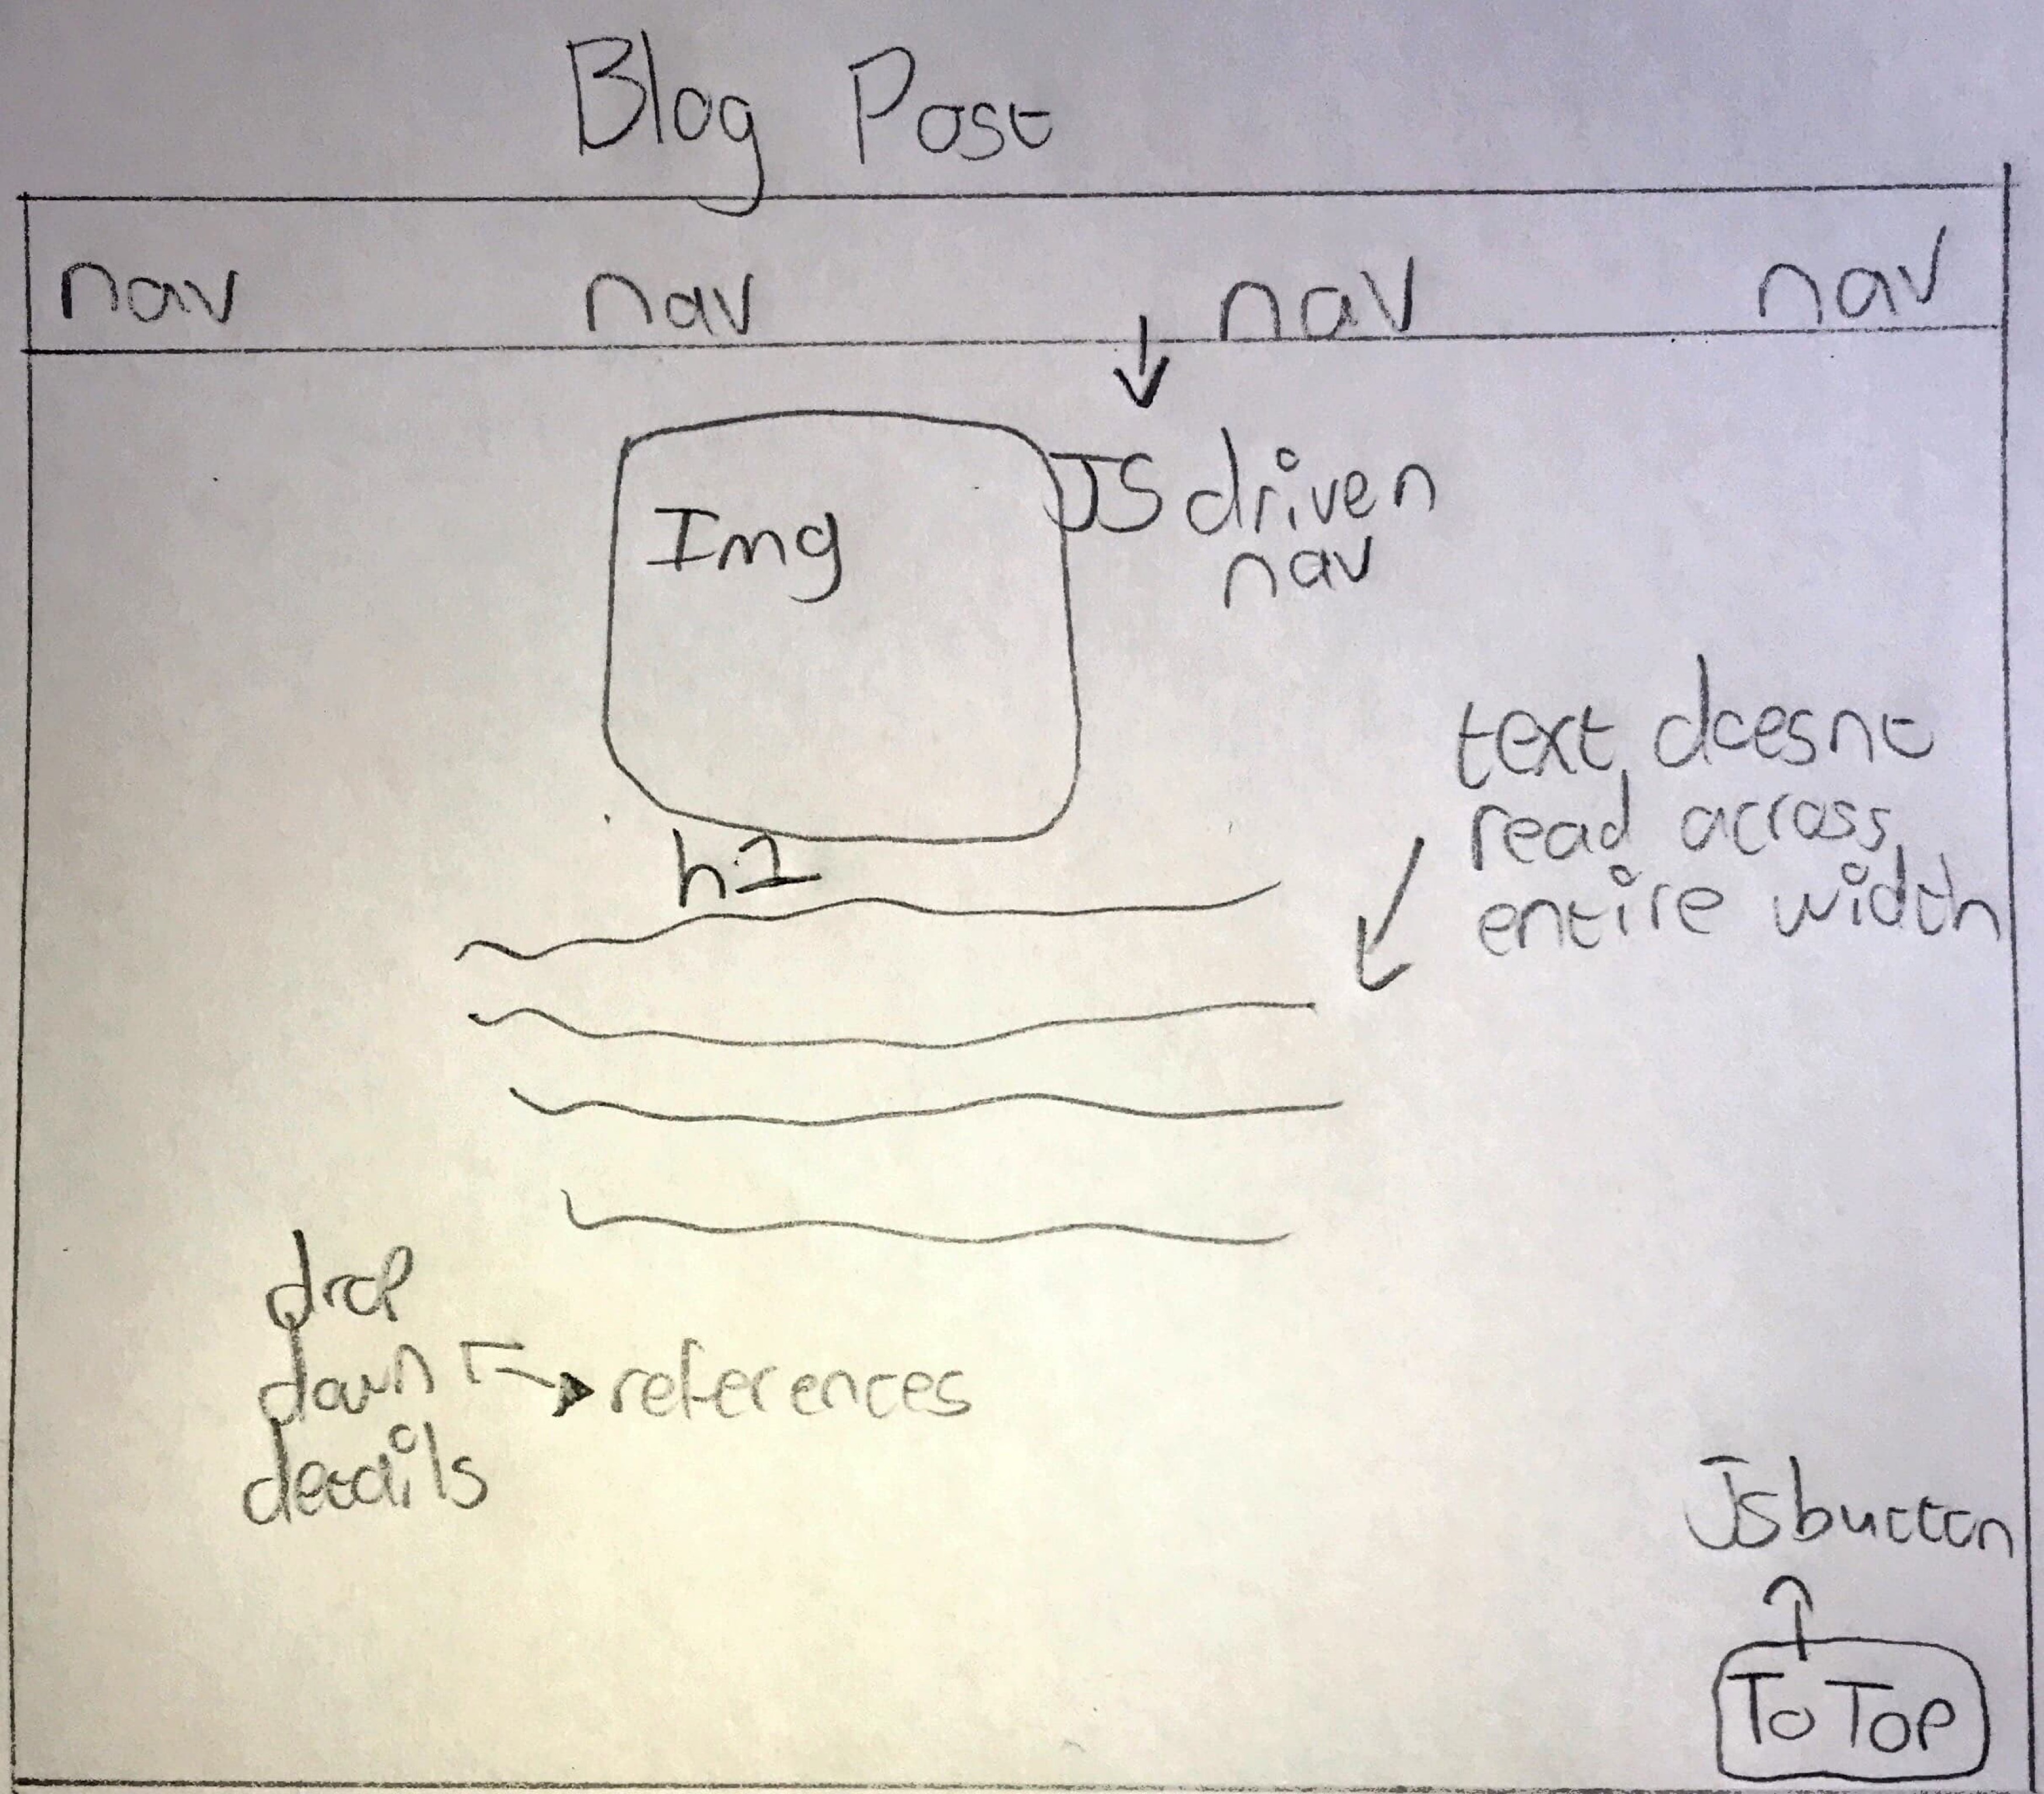 Blog Post
nav nav nav nav
Img
JS driven
nav
text doesnt
read across
entire width
h1
drop
down
details
references
JS button
To Top